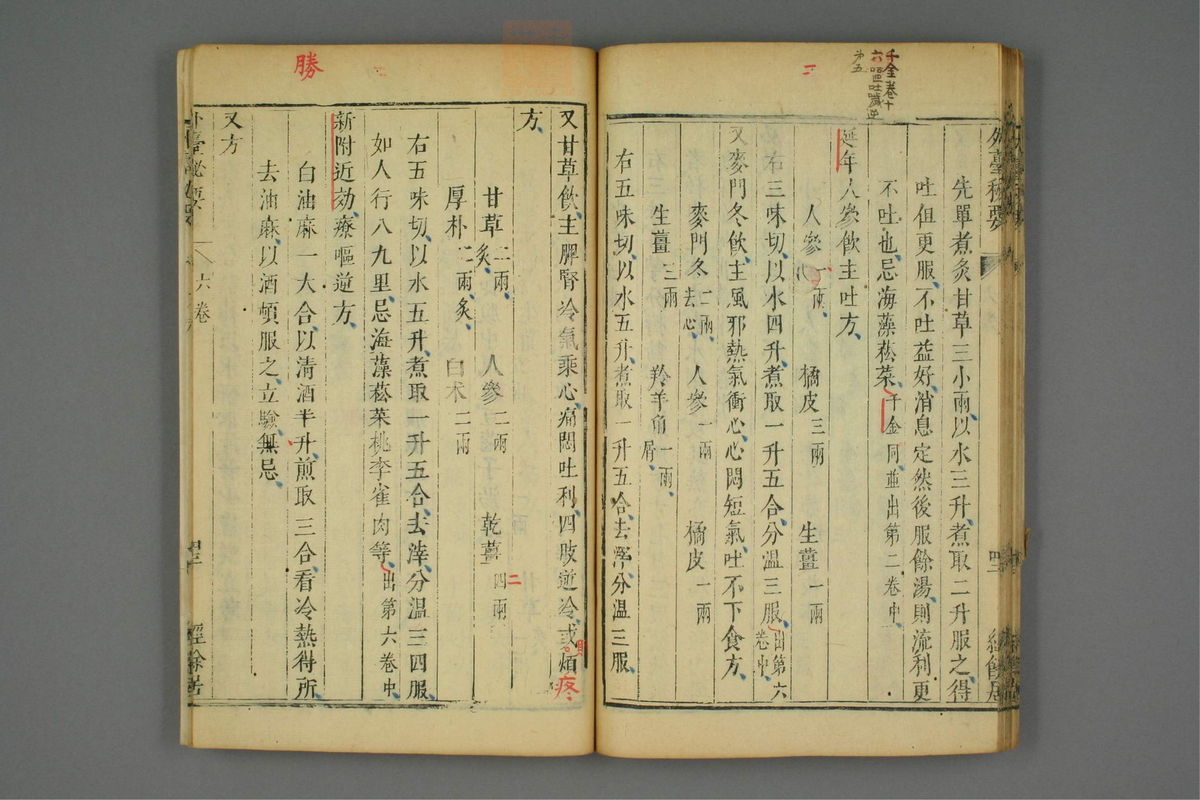 千金卷十
六嘔吐噦逆
第五
外臺秘要
先單煮炙甘草三小兩以水三升煮取二升服之得
吐但更服不吐益好消息定然後服餘湯則流利更
不吐也忌海藻菘菜千金同並出第二卷中
延年人參飲主吐方
人參一兩 橘皮三兩 生薑一兩
右三味切以水四升煮取一升五合分溫三服出第六卷中
又麥門冬飲主風邪熱氣衝心心悶短氣吐不下食方
麥門冬二兩去心 人參一兩 橘皮一兩
生薑三兩 羚羊角一兩屑
右五味切以水五升煮取一升五合去滓分溫三服
勝
又甘草飲主脾腎冷氣乘心痛悶吐利四肢逆冷或煩疼
方
甘草二兩炙 人參二兩 乾薑四兩
二
厚朴二兩炙 白朮二兩
右五味切以水五升煮取一升五合去滓分溫三四服
如人行八九里忌海藻菘菜桃李雀肉等出第六卷中
新附近効療嘔逆方
白油麻一大合以清酒半升煎取三合看冷熱得所
去油麻以酒頓服之立驗無忌
又方
外臺秘要 六卷 經餘居